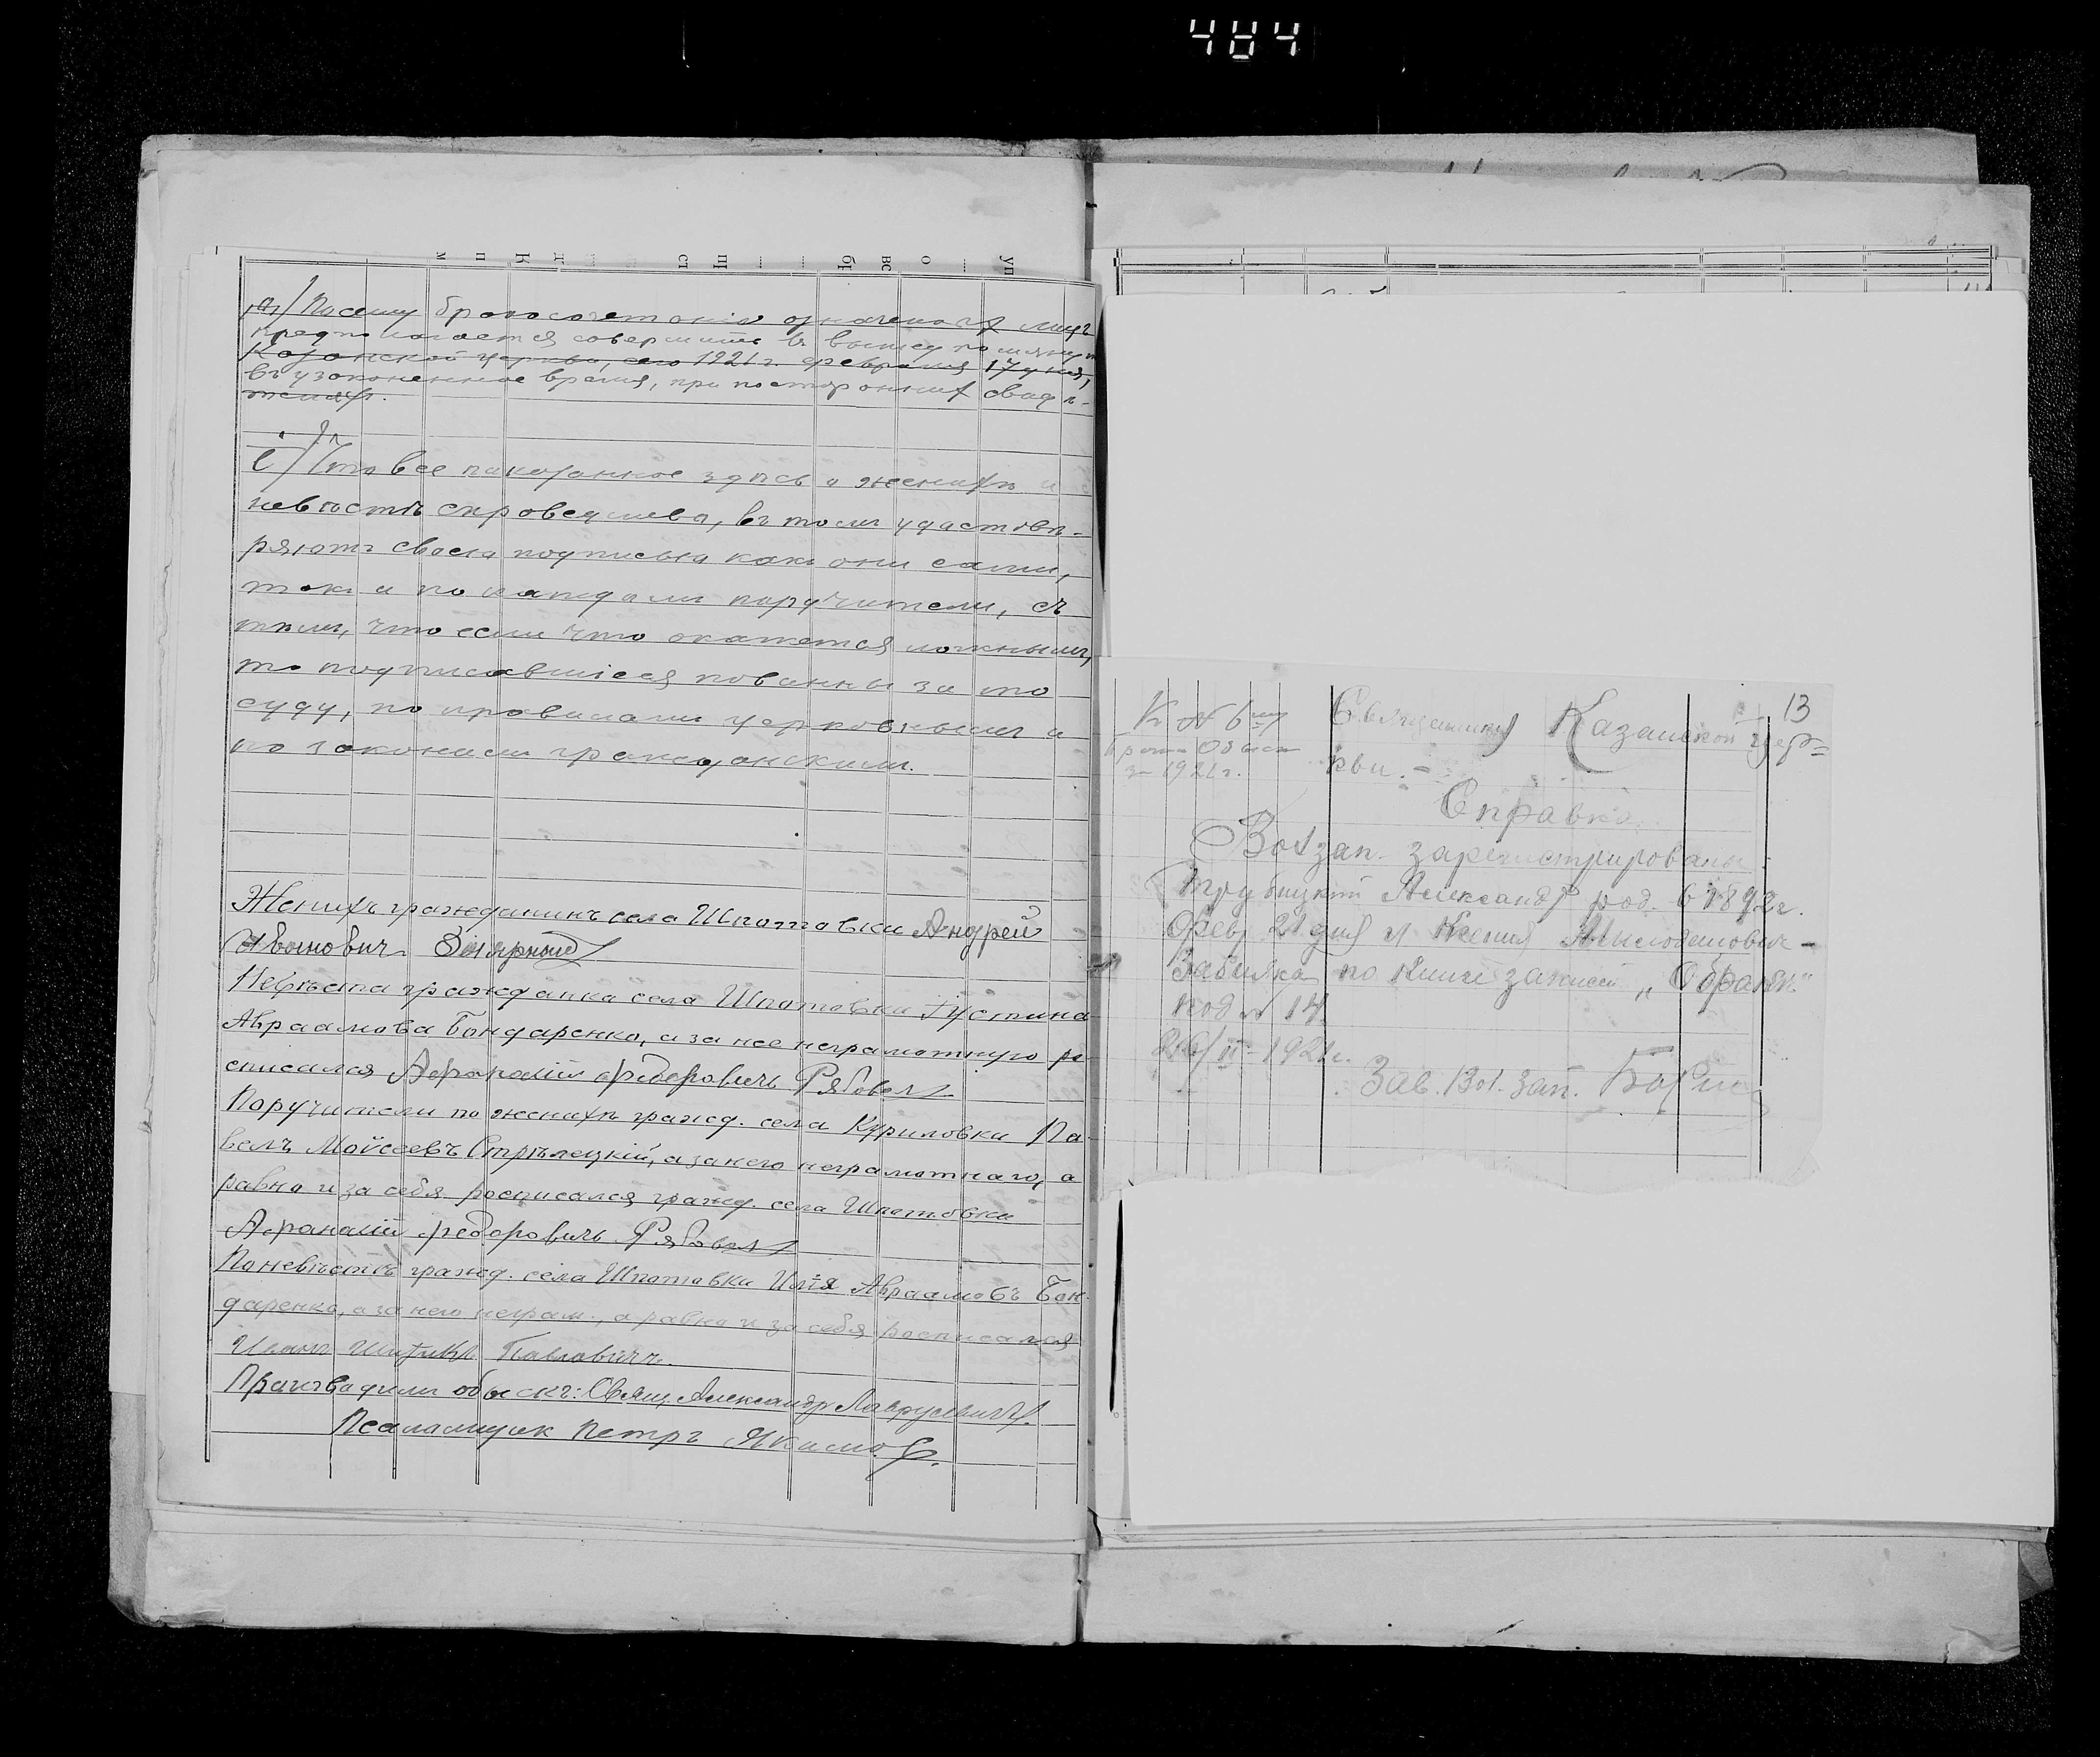 484
м п К Д ст Щ бр вс о уп
а/ Посему бракосочетаніе означеныхъ лицъ
предполагается совершить въ выше помянут
Казанской церкви, сего 1921 г. февраля 17 дня,
въ узаконенное время, при постороннихъ свидѣ-
теляхъ.
і/ Что все показанное здѣсь о женихѣ и
невѣстѣ справедливо, въ томъ удостовѣ-
ряютъ своею подписью какъ они сами,
такъ и по каждомъ поручители, съ
тѣмъ, что если что окажется ложнымъ,
то подписавшіеся повинны за то
суду, по правиламъ церковнымъ и
по законамъ гражданскимъ.
Женихъ гражданинъ села Шпотовки Андрей
Ивановичъ
Невѣста гражданка села Шпотовки Іустина
Авраамова Бондаренко, а за нее неграмотную ро-
списался Афанасій Федоровичъ Рябовол
Поручители по женихѣ гражд. села Куриловки Па-
велъ Мойсеевъ Стрѣлецкій, а за него неграмотнаго, а
равно и за себя росписался гражд. села Шпотовки
Афанасій Федоровичъ Рябовол
По невѣстѣ гражд. села Шпотовки Илія Авраамовъ Бон-
даренко, а за него неграм., а равно и за себя росписался
Иванъ Павловичъ.
Производили обыскъ: Свящ. Александръ
Псаломщик Петръ Якимов.
13
К № 6му
Брачн Обыск
за 1921 г.
Священнику Казанской цер=
кви. -
Справка.
Вол зап. зарегистрированы
Трубицкий Александр род. в 1892 г.
Февр 21 дня и Ксения
Забияка по книге записей „О браке"
под № 14.
26/II-1921 г.
Зав. Вол. Зап.